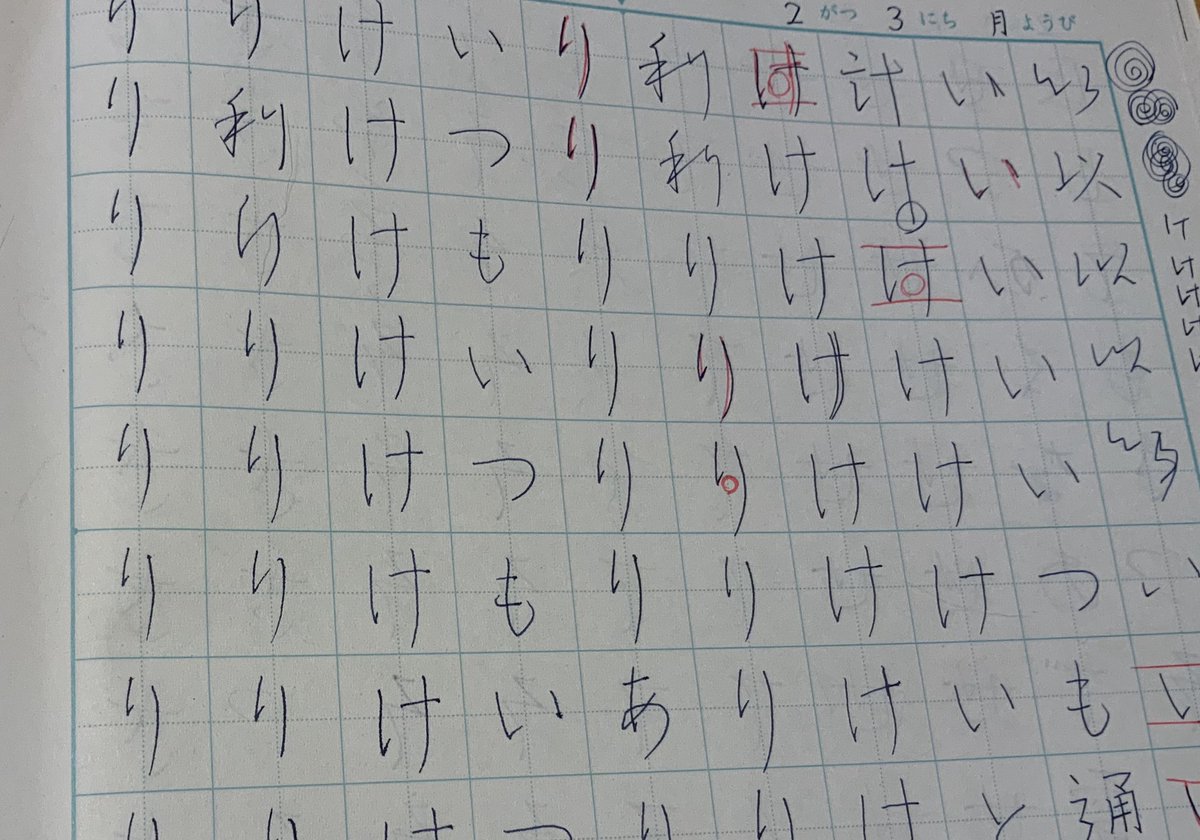 2がつ3にち月ようび
けけけけ
以以以以以いい
いいいいいつも通
計けけけけけいと
けけけけけけけけ
利利りりりりりり
りりりりりりあり
いつもいつもいつ
けけけけけけけけ
り利りりりりりり
りりりりりりりり